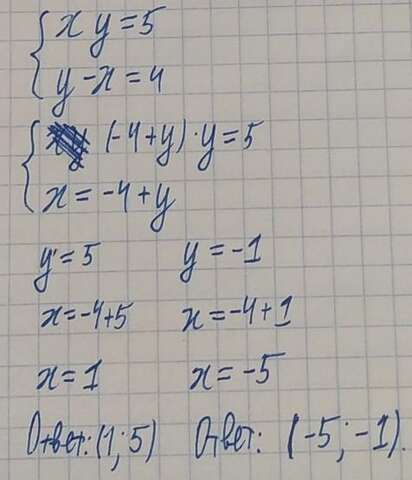 { x y = 5
{ y - x = 4
{ (-4+y)·y=5
{ x = -4+y
y = 5 y = -1
x=-4+5 x=-4+1
x=1 x=-5
Ответ: (1; 5) Ответ: (-5; -1).